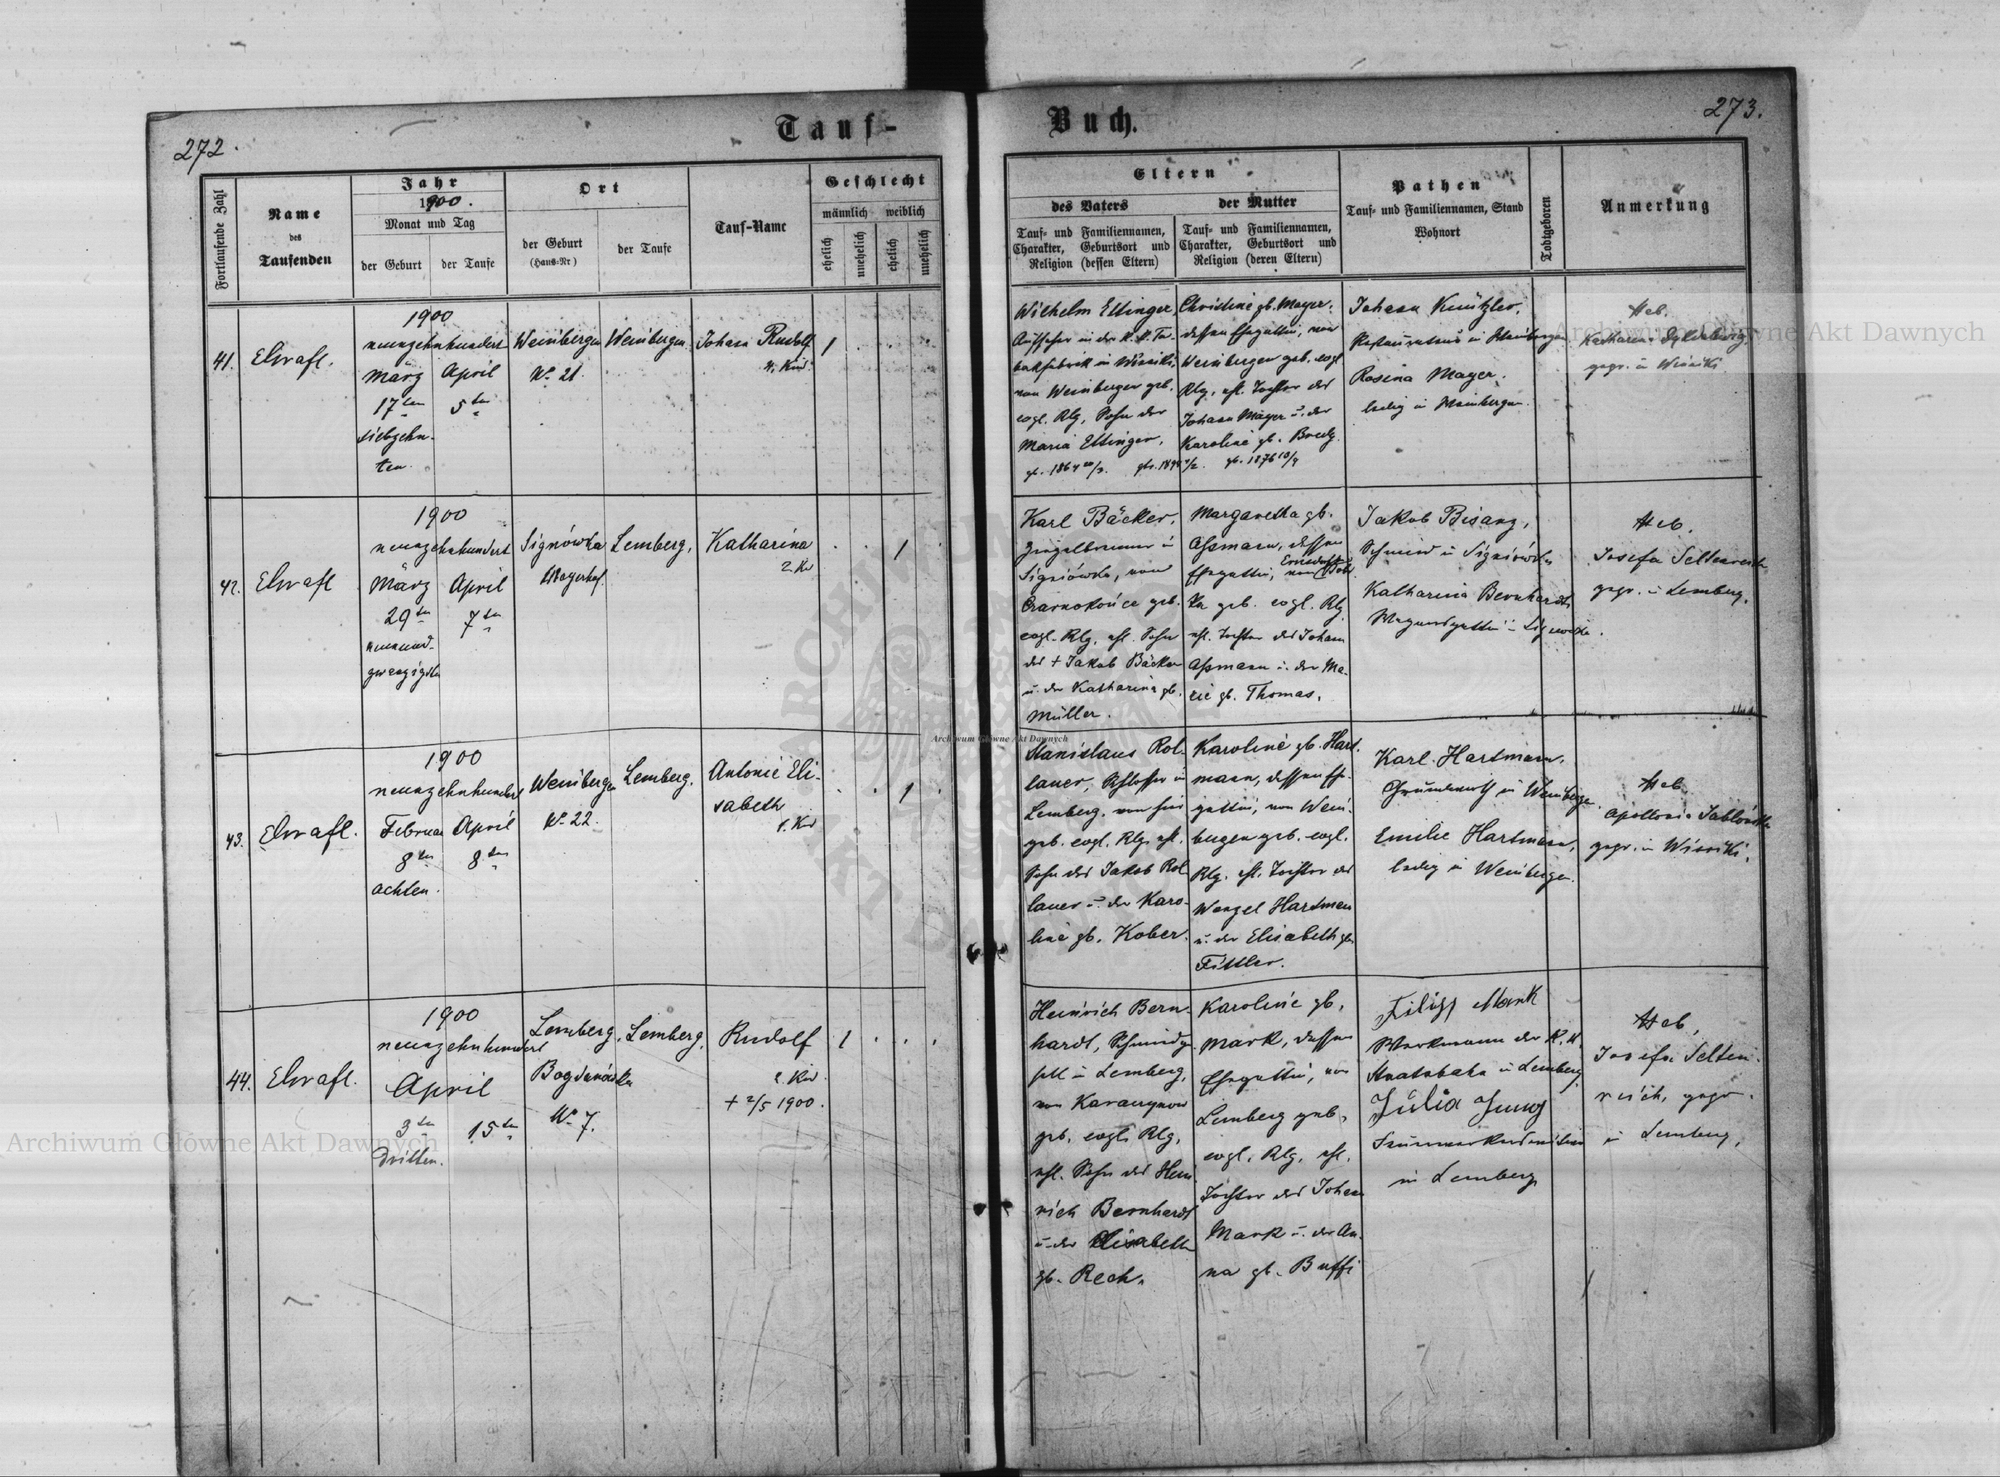 272.
Tauf-
Buch.
273.
Fortlaufende Zahl
Name
des
Taufenden
Jahr
1900.
Monat und Tag
der Geburt
der Taufe
Ort
der Geburt
(Haus-Nr)
der Taufe
Tauf-Name
Geschlecht
männlich
weiblich
ehelich
unehelich
ehelich
unehelich
Eltern
des Vaters
der Mutter
Tauf- und Familiennamen,
Charakter, Geburtsort und
Religion (dessen Eltern)
Tauf- und Familiennamen,
Charakter, Geburtsort und
Religion (deren Eltern)
Pathen
Tauf- und Familiennamen, Stand
Wohnort
Todtgeboren
Anmerkung
41.
1900
neunzehnhundert
März
17ten
siebzehn-
ten
April
5ten
Weinbergen
No 21.
Weinbergen
Johann Rudolf
4. Kind.
1
Wilhelm Ettinger,
Aufseher in der k. k. Ta-
bakfabrik in Winniki,
von Weinbergen geb.
evgl. Rlg, Sohn der
Maria Ettinger.
Christine gb. Mayer,
dessen Ehegattin, von
Weinbergen geb. evgl
Rlg, ehl. Tochter des
Johann Mayer u. der
Karoline gb. Bredy.
Johann
Restaurateur in Weinbergen
Rosina Mayer,
ledig in Weinbergen
Heb.
Katharina
gepr. in Winniki
42.
1900
neunzehnhundert
März
29ten
neunund-
zwanzigsten
April
7ten
Signówka
Mayerhof.
Lemberg,
Katharina
2. Kd
1
Karl Bäcker,
Ziegelbrenner in
Signiówka, von
Czarnokońce geb.
evgl. Rlg, ehl. Sohn
des + Jakob Bäcker
u. der Katharina gb.
Müller.
Margaretha gb.
Aßmann, dessen
Ehegattin, von
geb. evgl. Rlg
ehl. Tochter des Johann
Aßmann u. der Ma-
rie gb. Thomas.
Jakob Bisanz,
Schmied in Signiówka
Katharina Bernhardt,
Wagnersgattin in Signiówka.
Heb.
Josefa Seltenreich
gepr. in Lemberg.
43.
1900
neunzehnhundert
Februar
8ten
achten.
April
8ten
Weinbergen
No 22.
Lemberg.
Antonie Eli-
sabeth
1. Kd
1
Stanislaus Rol-
lauer, Schlosser in
Lemberg, von hier
geb. evgl. Rlg, ehl.
Sohn des Jakob Rol-
lauer u. der Karo-
line gb. Kober.
Karoline gb. Hart-
mann, dessen Ehe-
gattin, von Wein-
bergen geb. evgl.
Rlg. ehl. Tochter des
Wenzel Hartman
u. der Elisabeth gb
Fittler.
Karl Hartmann,
Grundwirth in Weinbergen.
Emilie Hartmann,
ledig in Weinbergen.
Heb.
Apollonia Jablońska
gepr. in Winniki.
44.
1900
neunzehnhundert
April
3ten
dritten.
15ten
Lemberg,
Bogdanówka
No 7.
Lemberg,
Rudolf
2. Kd.
+ 2/5 1900.
1
Heinrich Bern-
hardt, Schmidge-
sell in Lemberg,
von
geb. evgl. Rlg,
ehl. Sohn des Hein-
rich Bernhardt
u. der Elisabeth
gb. Rech.
Karoline gb,
Mark, dessen
Ehegattin, von
Lemberg geb,
evgl. Rlg, ehl.
Tochter des Johann
Mark u. der An-
na gb. Buffi
Filipp Mark
Werkmann der k. k.
Staatsbahn in Lemberg,
Julia Jung
in Lemberg
Heb,
Josefa Selten-
reich, gepr.
in Lemberg,
Archiwum Główne Akt Dawnych
Archiwum Główne Akt Dawnych
Archiwum Główne Akt Dawnych